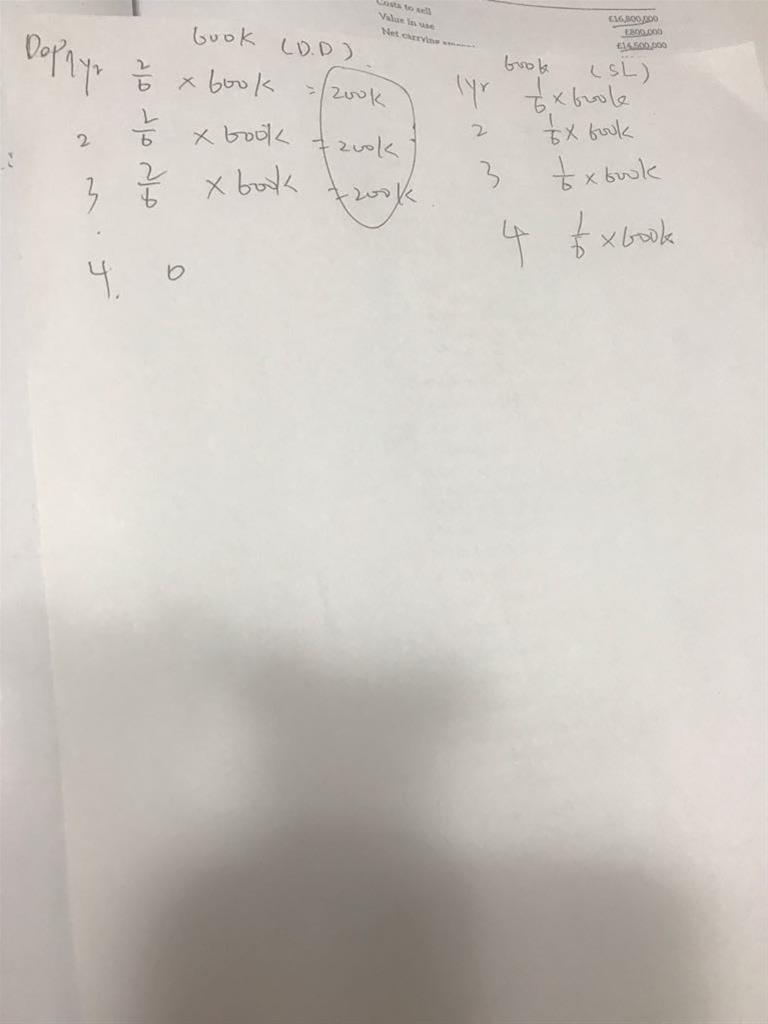 Costs to sell
Value in use £16,800,000
Net carrying £800,000
£16,500,000
Dep 600k (D.D)
1yr 2/6 × 600k = 200k
2 2/6 × 600k = 200k
3 2/6 × 600k = 200k
4. 0
600k (SL)
1yr 1/6 × 600k
2 1/6 × 600k
3 1/6 × 600k
4 1/6 × 600k